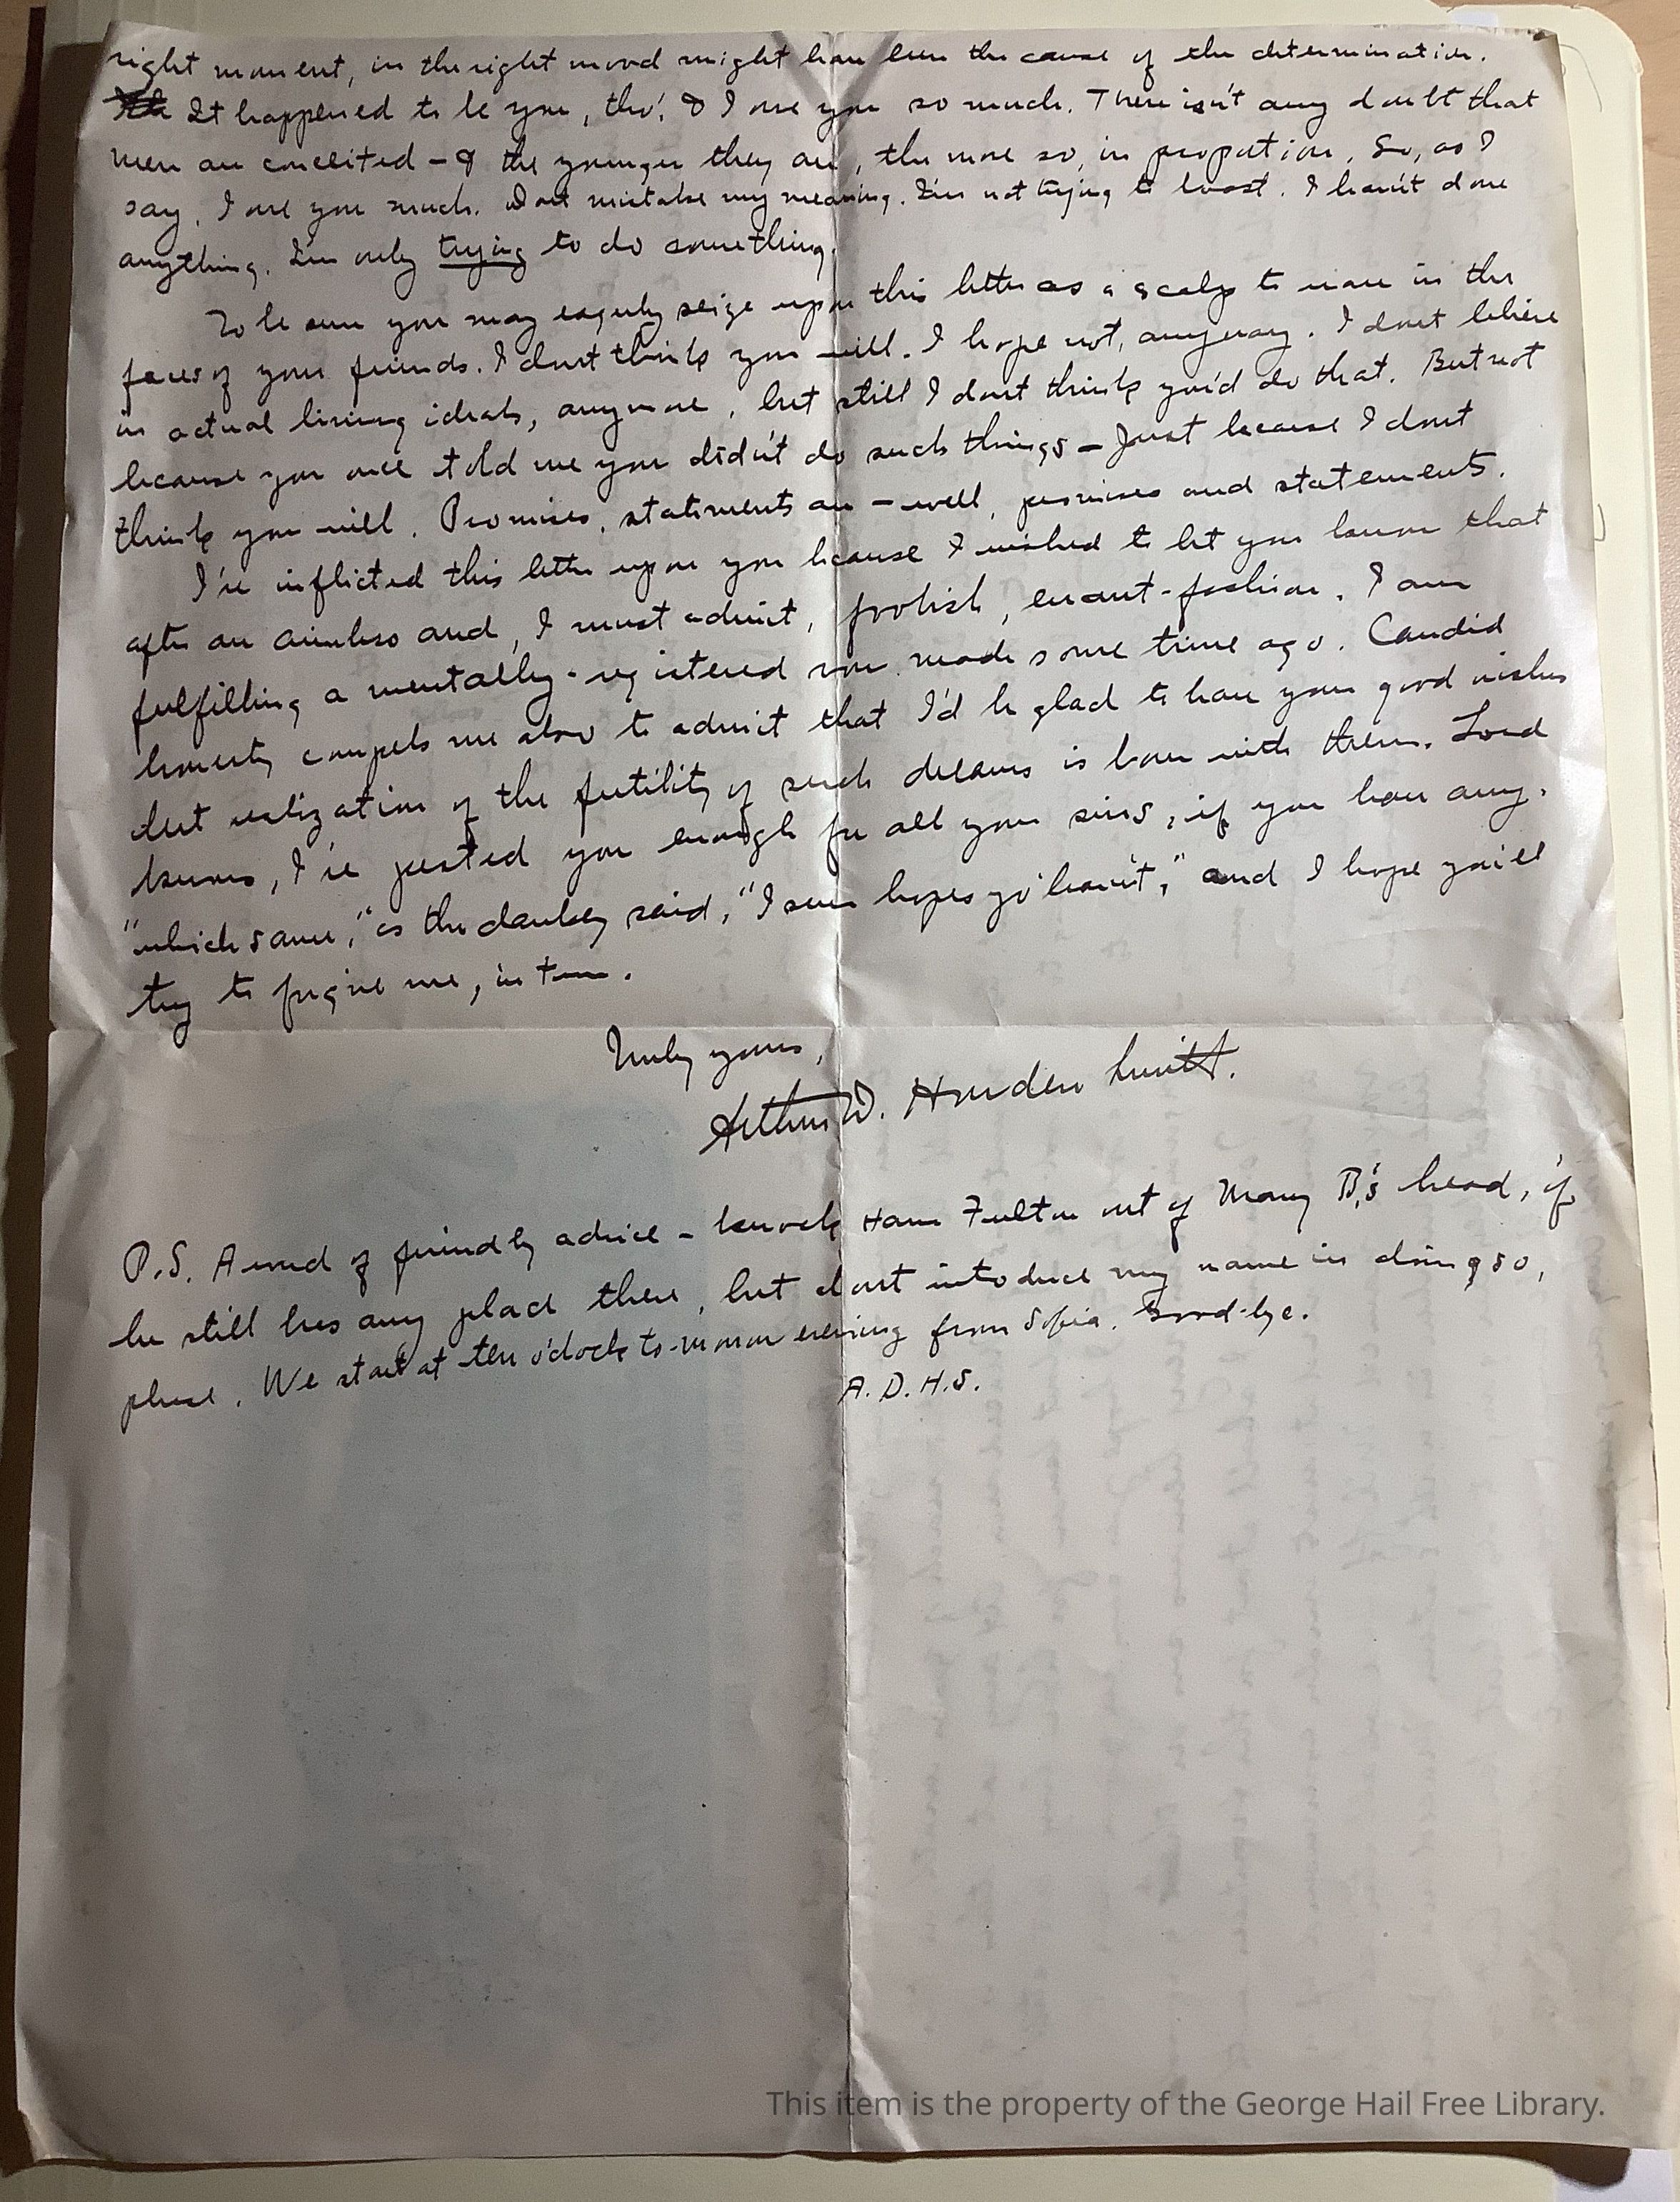 right moment, in the right mood might have been the cause of the determination.
It happened to be you, tho', & I owe you so much. There isn't any doubt that
men are conceited – & the younger they are, the more so, in proportion. So, as I
say, I owe you much. Dont mistake my meaning. I'm not trying to boast. I haven't done
anything. I'm only trying to do something.
To be sure you may eagerly seize upon this letter as a scalp to wave in the
faces of your friends. I dont think you will. I hope not, anyway. I dont believe
in actual living ideals, anymore, but still I dont think you'd do that. But not
because you once told me you didn't do such things – Just because I dont
think you will. Promises, statements are – well, promises and statements.
I've inflicted this letter upon you because I wished to let you know that
after an aimless and, I must admit, foolish, errant-fashion, I am
fulfilling a mentally-registered vow made some time ago. Candid
honesty compels me also to admit that I'd be glad to have your good wishes
but realization of the futility of such dreams is born with them. Lord
knows, I've pested you enough for all your sins, if you have any.
"which same," as the darkey said, "I sure hopes yo' haven't," and I hope you'll
try to forgive me, in turn.
Truly yours,
Arthur D. Howden Smith.
P.S. A word of friendly advice – knock Ham Fulton out of Mary B.'s head, if
he still has any place there, but dont introduce my name in doing so,
please. We start at ten o'clock to-morrow evening from Sofia. Good-bye.
A. D. H. S.
This item is the property of the George Hail Free Library.